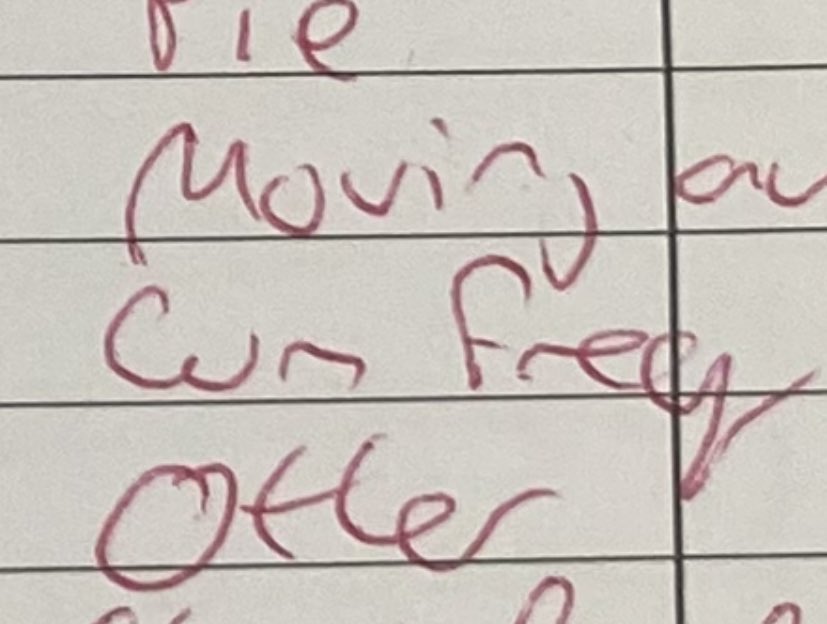 Pie
Moving av
Cum Freq
Other